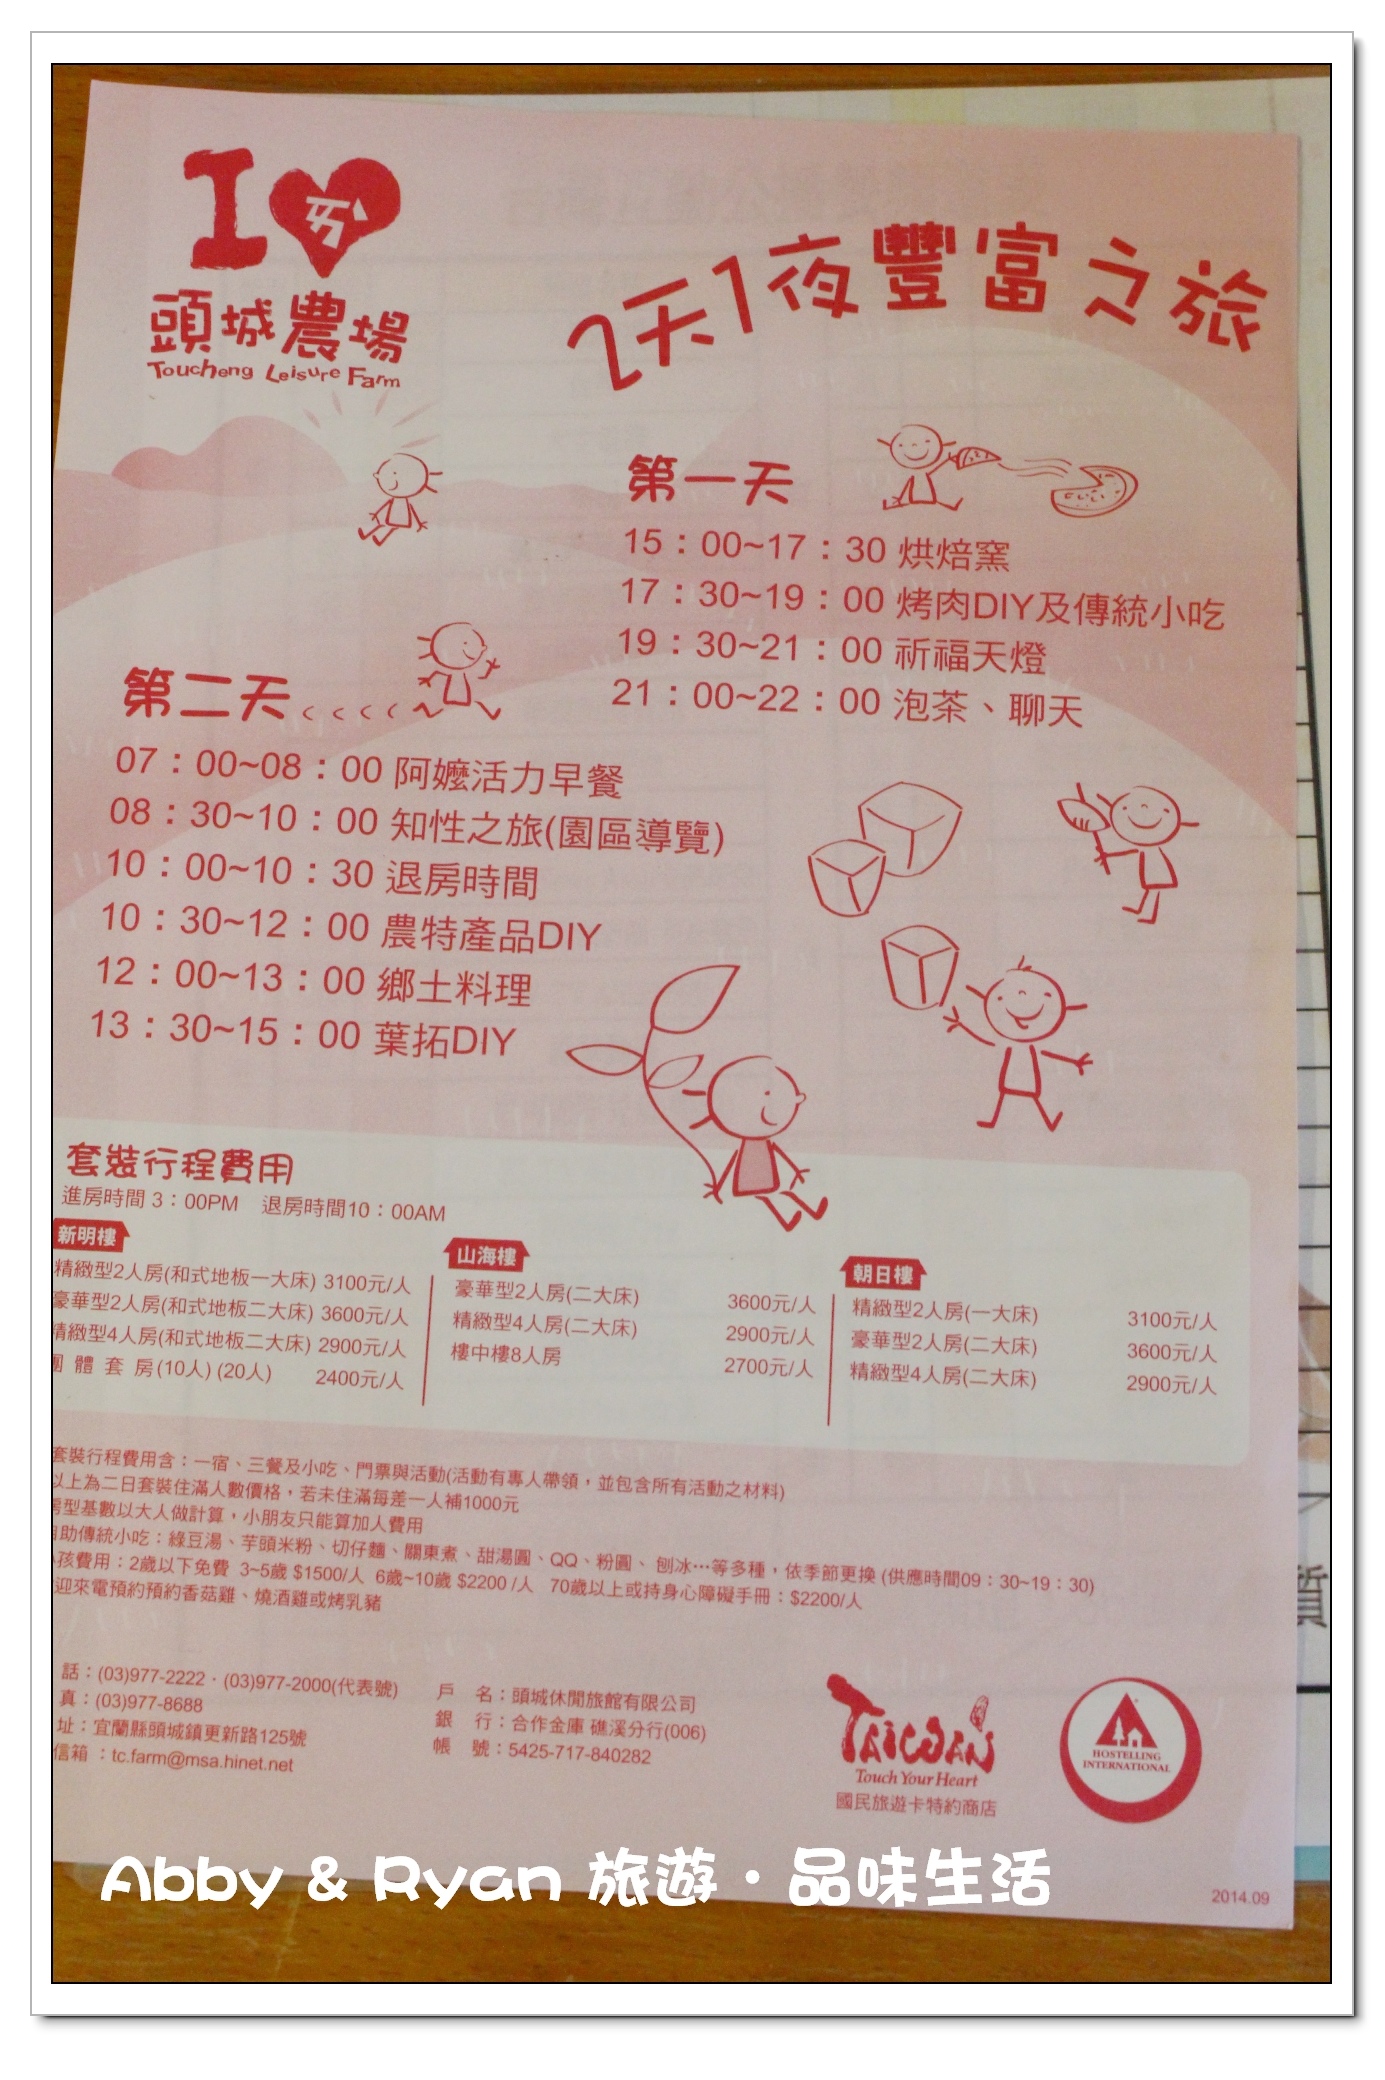 I ㄞˋ
頭城農場
Toucheng Leisure Farm
2天1夜豐富之旅
第一天
15：00~17：30 烘焙窯
17：30~19：00 烤肉DIY及傳統小吃
19：30~21：00 祈福天燈
21：00~22：00 泡茶、聊天
第二天
07：00~08：00 阿嬤活力早餐
08：30~10：00 知性之旅(園區導覽)
10：00~10：30 退房時間
10：30~12：00 農特產品DIY
12：00~13：00 鄉土料理
13：30~15：00 葉拓DIY
套裝行程費用
進房時間 3：00PM 退房時間10：00AM
新明樓
精緻型2人房(和式地板一大床) 3100元/人
豪華型2人房(和式地板二大床) 3600元/人
精緻型4人房(和式地板二大床) 2900元/人
團 體 套 房(10人) (20人) 2400元/人
山海樓
豪華型2人房(二大床) 3600元/人
精緻型4人房(二大床) 2900元/人
樓中樓8人房 2700元/人
朝日樓
精緻型2人房(一大床) 3100元/人
豪華型2人房(二大床) 3600元/人
精緻型4人房(二大床) 2900元/人
套裝行程費用含：一宿、三餐及小吃、門票與活動(活動有專人帶領，並包含所有活動之材料)
以上為二日套裝住滿人數價格，若未住滿每差一人補1000元
房型基數以大人做計算，小朋友只能算加人費用
自助傳統小吃：綠豆湯、芋頭米粉、切仔麵、關東煮、甜湯圓、QQ、粉圓、 刨冰…等多種，依季節更換 (供應時間09：30~19：30)
孩費用：2歲以下免費 3~5歲 $1500/人 6歲~10歲 $2200 /人 70歲以上或持身心障礙手冊：$2200/人
迎來電預約預約香菇雞、燒酒雞或烤乳豬
話：(03)977-2222．(03)977-2000(代表號)
真：(03)977-8688
址：宜蘭縣頭城鎮更新路125號
信箱：tc.farm@msa.hinet.net
戶 名：頭城休閒旅館有限公司
銀 行：合作金庫 礁溪分行(006)
帳 號：5425-717-840282
TAIWAN
Touch Your Heart
國民旅遊卡特約商店
HOSTELLING
INTERNATIONAL
Abby & Ryan 旅遊・品味生活
2014.09